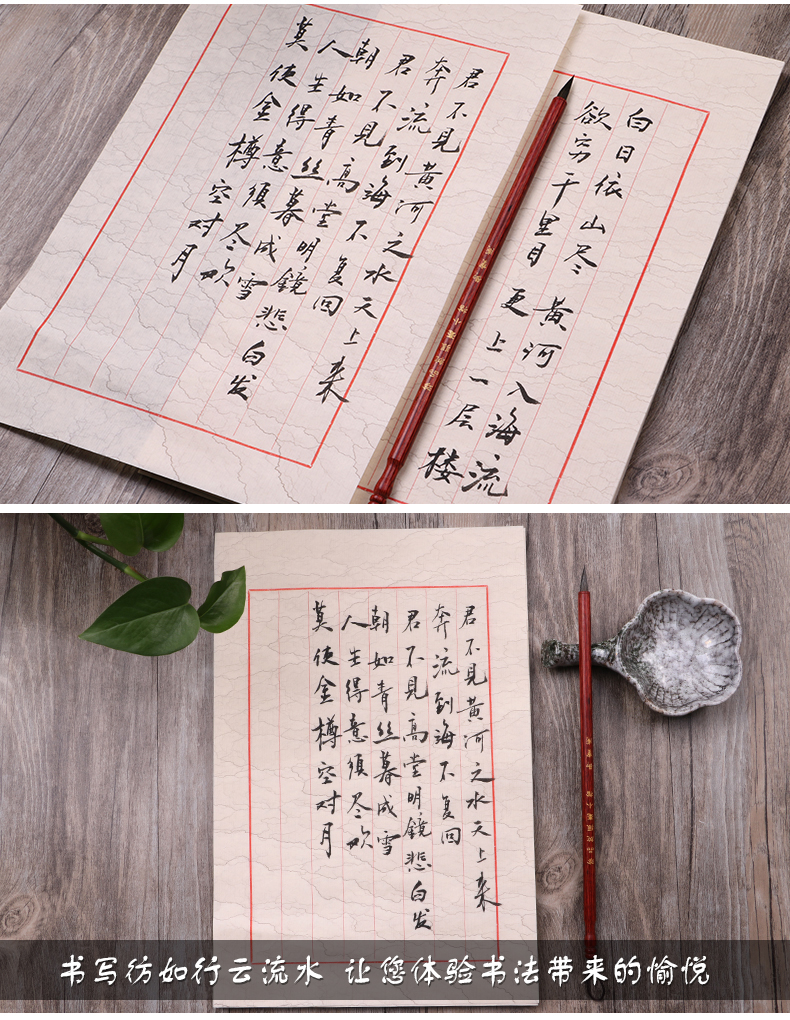 君不见黄河之水天上来
奔流到海不复回
君不见高堂明镜悲白发
朝如青丝暮成雪
人生得意须尽欢
莫使金樽空对月
白日依山尽 黄河入海流
欲穷千里目 更上一层楼
君不见黄河之水天上来
奔流到海不复回
君不见高堂明镜悲白发
朝如青丝暮成雪
人生得意须尽欢
莫使金樽空对月
书写彷如行云流水 让您体验书法带来的愉悦